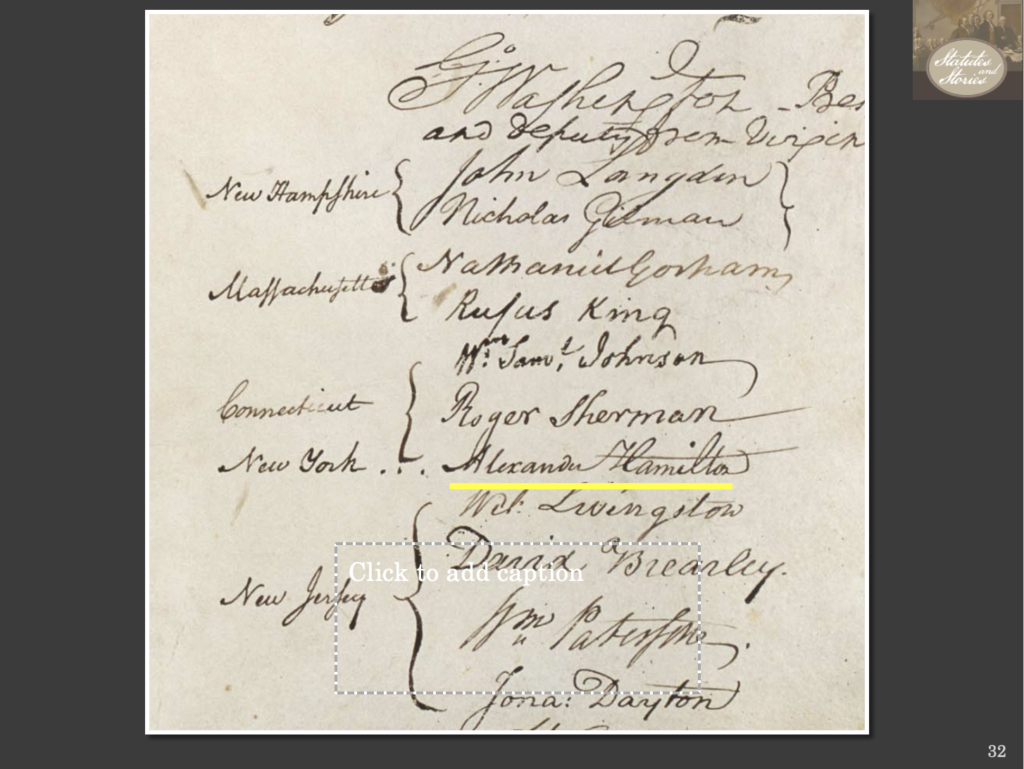 Statutes
and
Stories
Go Washington - Pres
and deputy from Virgin
New Hampshire { John Langdon }
Nicholas Gilman
Massachusetts { Nathaniel Gorham
Rufus King
Wm: Saml. Johnson
Connecticut { Roger Sherman
New York . . . Alexander Hamilton
Wil: Livingston
David Brearley.
Click to add caption
New Jersey { Wm Paterson.
Jona: Dayton
32